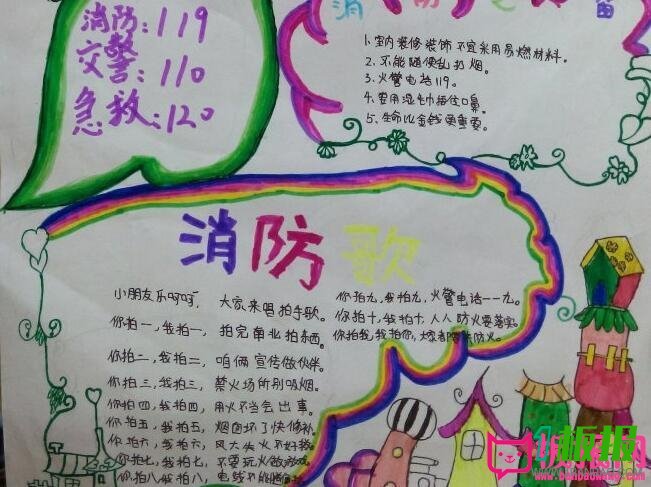 消防：119
交警：110
急救：120
消防
1.室内装修装饰不宜采用易燃材料。
2.不能随便乱扔烟。
3.火警电话119。
4.要用湿毛巾捂住口鼻。
5.生命比金钱更重要。
消防歌
小朋友乐呵呵，大家来唱拍手歌。
你拍一，我拍一，拍完草业拍东西。
你拍二，我拍二，咱俩宣传做伙伴。
你拍三，我拍三，禁火场所别吸烟。
你拍四，我拍四，用火不当会出事。
你拍五，我拍五，烟囱坏了快修补。
你拍六，我拍六，风大失火不好救。
你拍七，我拍七，不要玩火做游戏。
你拍八，我拍八，电线不能
你拍九，我拍九，火警电话一一九。
你拍十，我拍十，人人防火要落实。
你拍我，我拍你，大家都来防火。
板报